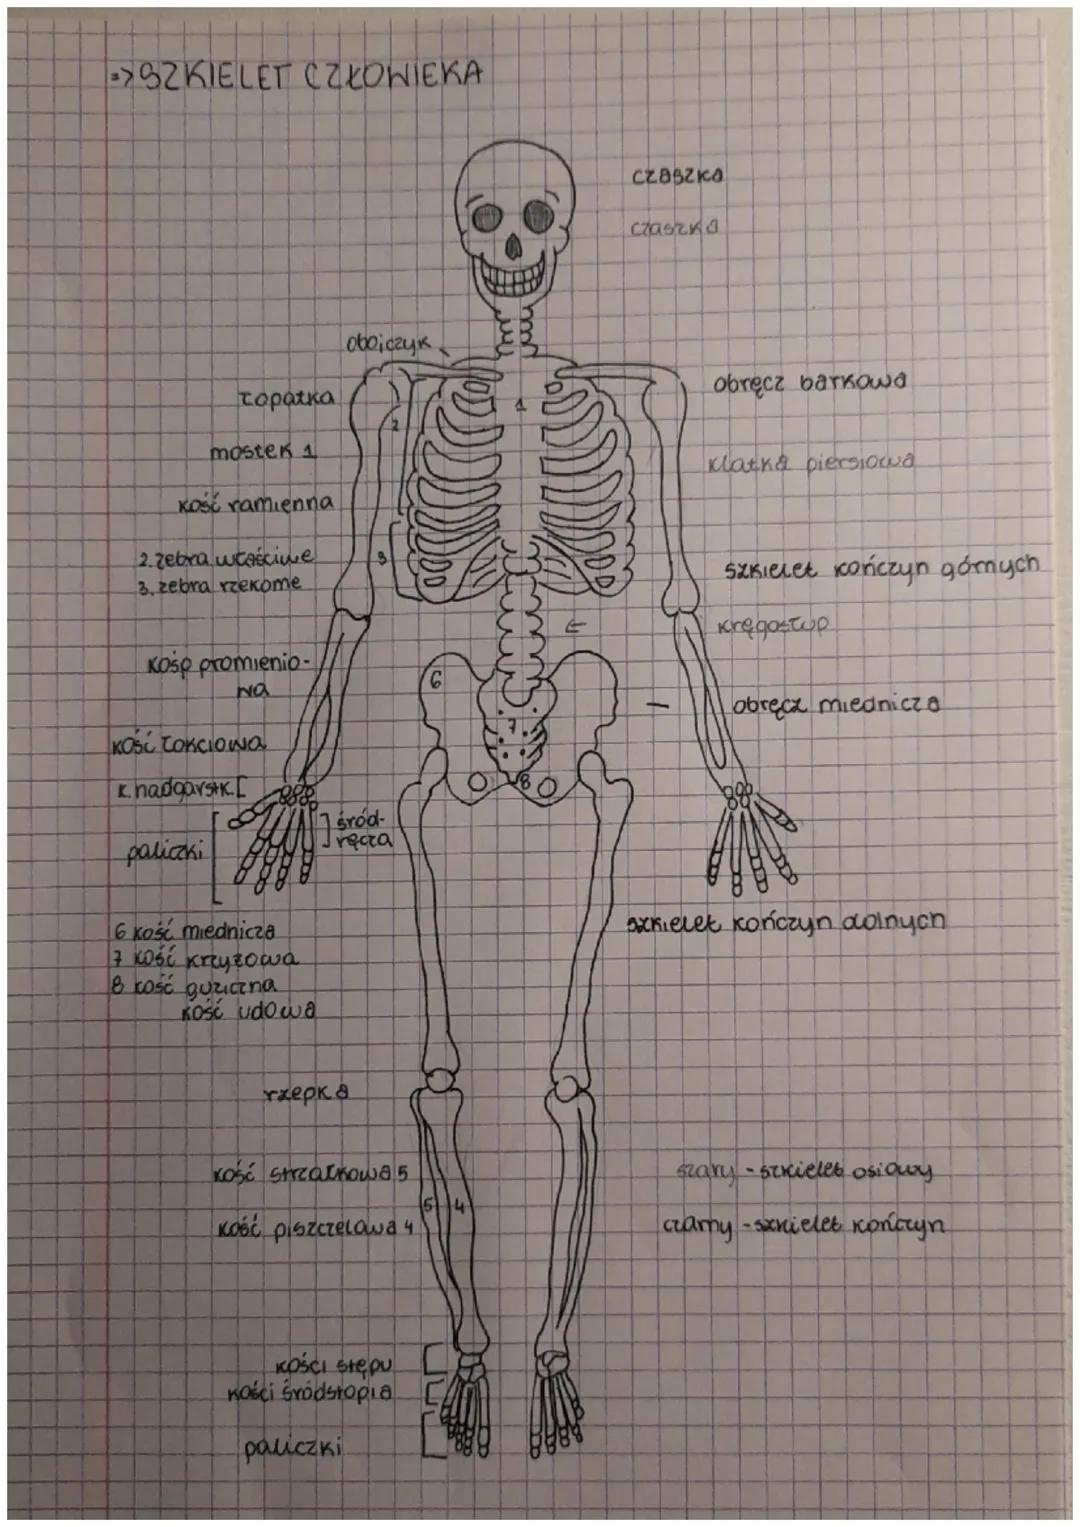 => SZKIELET CZŁOWIEKA
czaszka
czaszka
obojczyk
łopatka
1
obręcz barkowa
2
mostek 1
klatka piersiowa
kość ramienna
2. żebra właściwe
3. żebra rzekome
3
szkielet kończyn górnych
kręgosłup
kośp promienio-
wa
6
7
obręcz miednicza
kość łokciowa
k. nadgarstk. [
8
śród-
ręcza
paliczki
szkielet kończyn dolnych
6 kość miednicza
7 kość krzyżowa
8 kość guziczna
kość udowa
rzepka
kość strzałkowa 5
szary - szkielet osiowy
5
4
kość piszczelowa 4
czarny - szkielet kończyn
kości stępu
kości śródstopia
paliczki